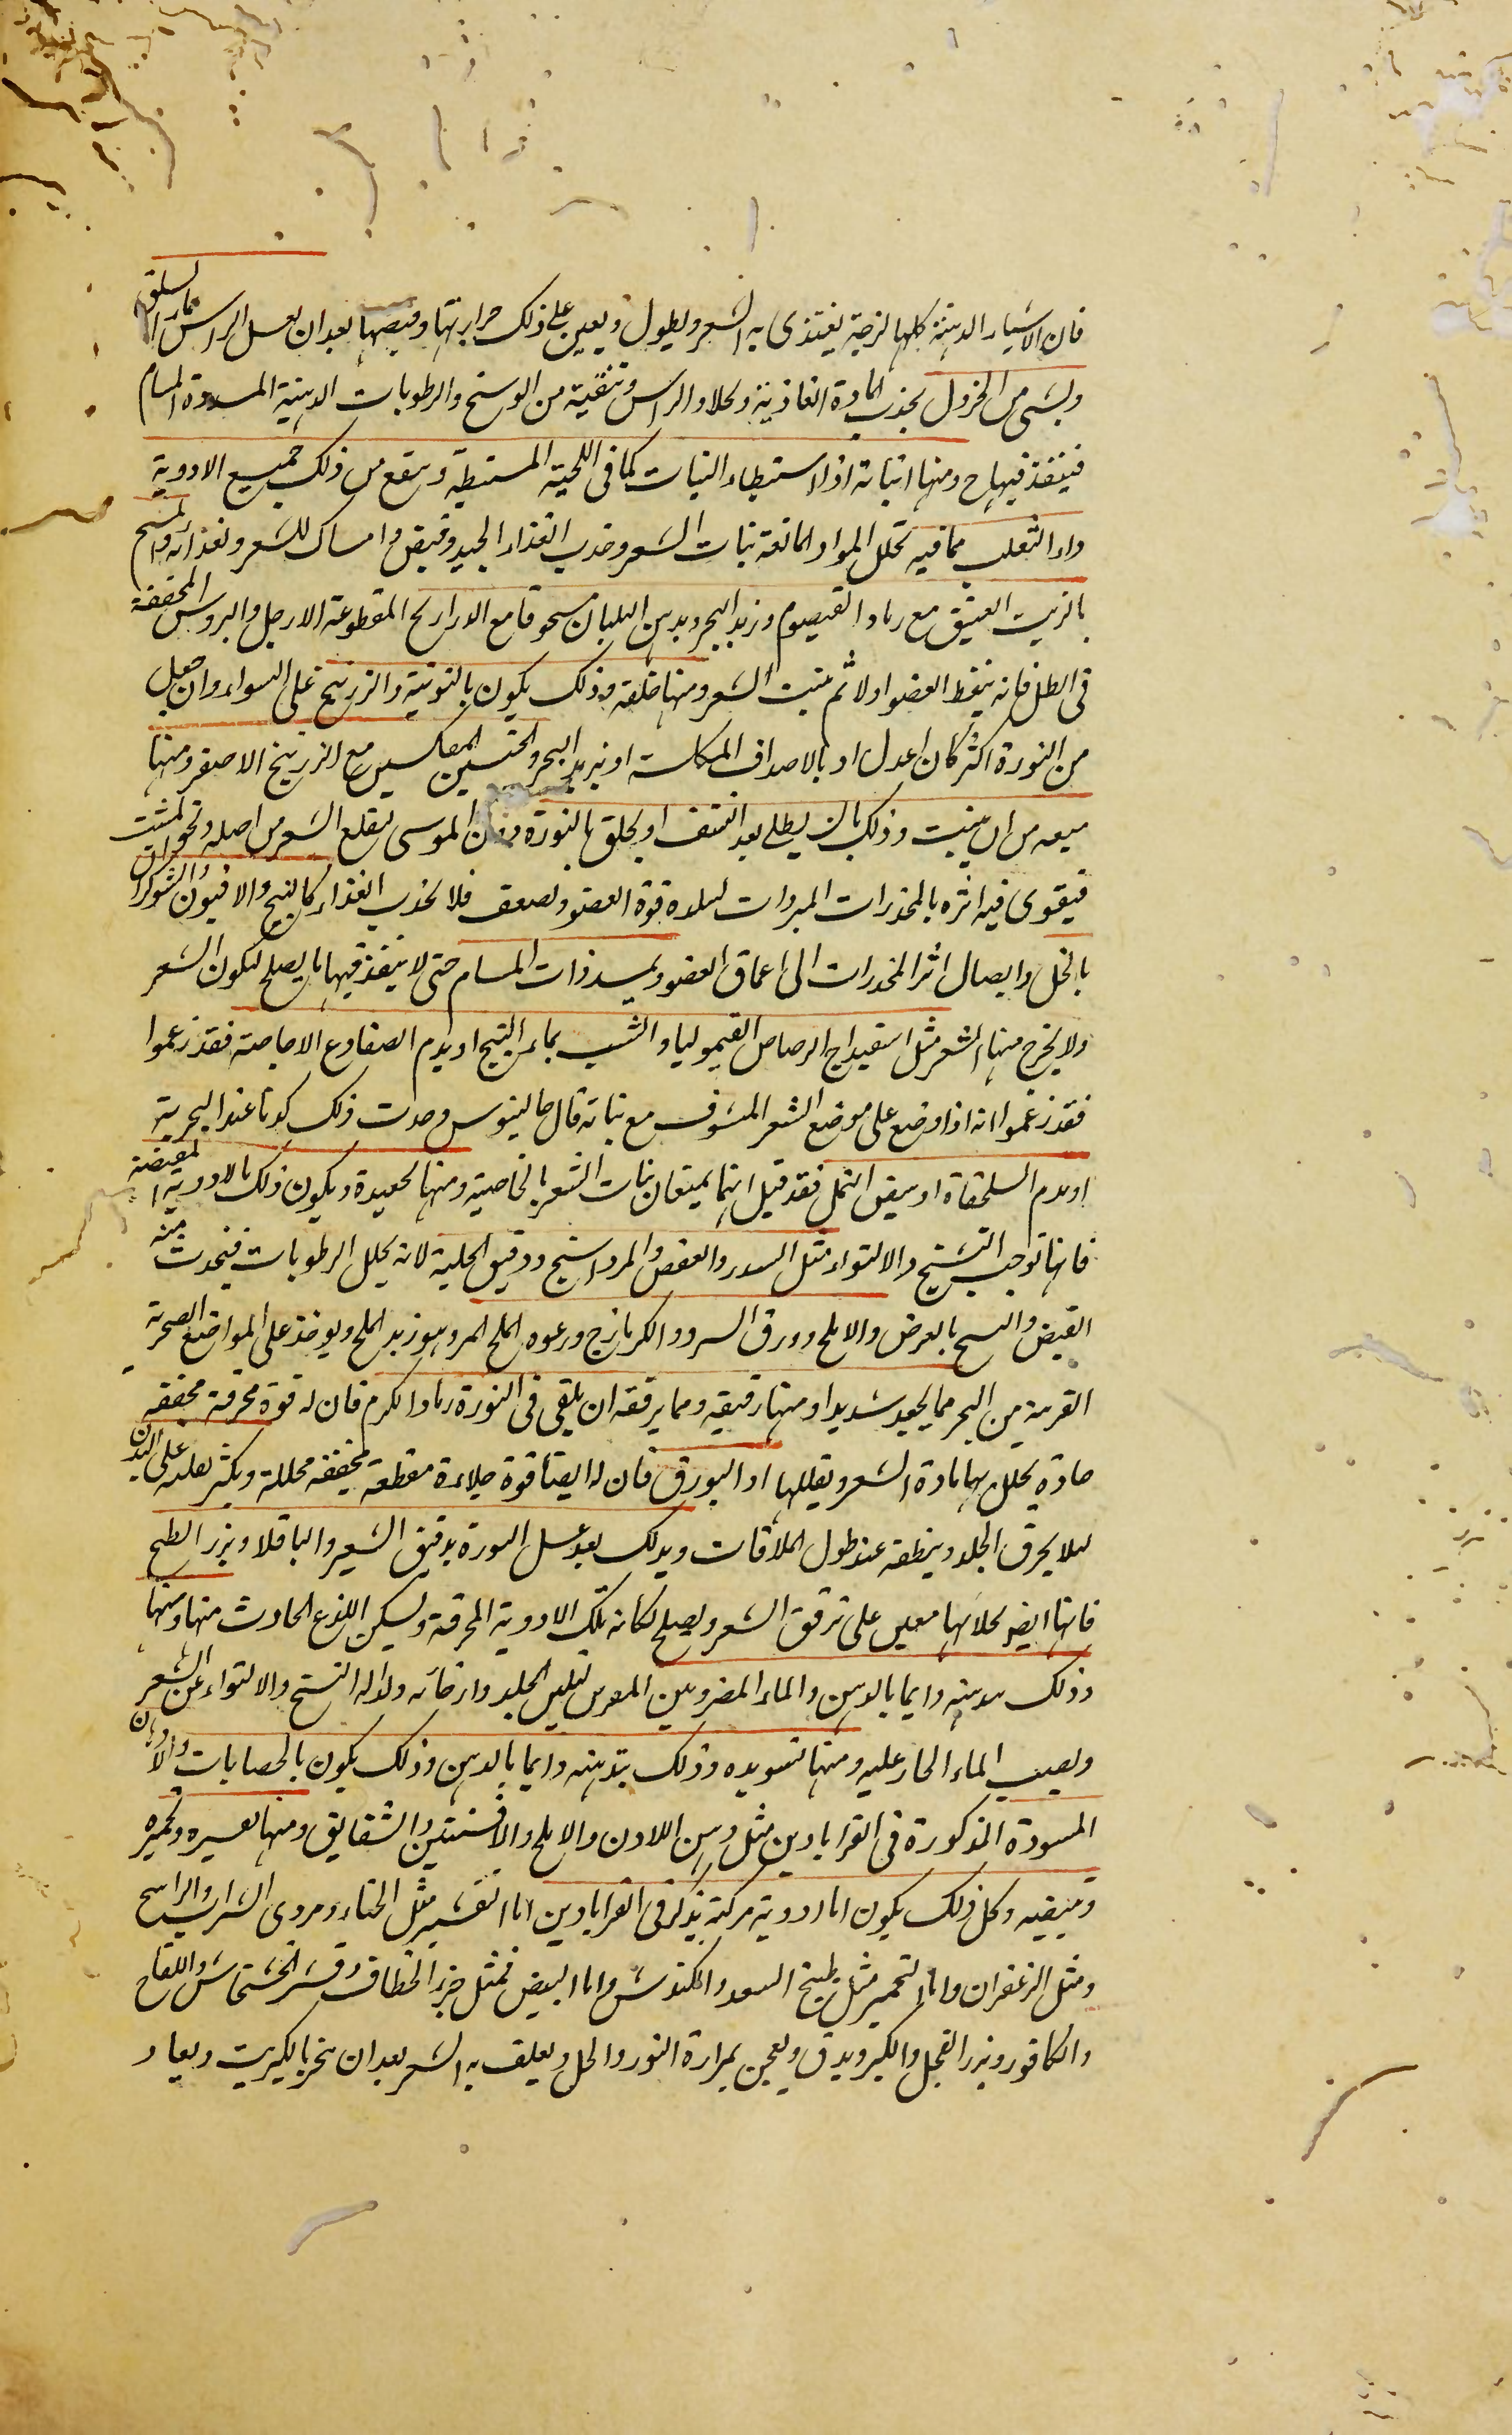 فان الاشياء الدهنية كلها لزجة يغتذى به الشعر ويطول ويعين على ذلك حرارتها وقبضها بعد ان يغسل الراس بماء السلق
وبشىء من الخردل بجذب المادة الغاذية وجلاء الراس وتنقية من الوسخ والرطوبات الدهنية المسددة المسام
فينفذ فيها ح ومنها انباته اذا استبطاء النبات كما فى اللحية المستبطئة وينفع من ذلك جميع الادوية
داء الثعلب مما فيه تحلل المواد المانعة نبات الشعر وجذب الغذاء الجيد وقبض وامساك للشعر ولغذائه والمسح
بالزيت العتيق مع رماد القيصوم وزبد البحر وبدهن البلبان مسحوقا مع الذراريح المقطوعة الارجل والرؤس المجففة
فى الظل فانه ينفط العضو اولا ثم ينبت الشعر ومنها حلقه وذلك يكون بالنورة والزرنيخ على السواء وان جعل
من النورة اكثر كان اعدل او بالاصداف المكلسة او بزبد البحر والجبسين المكلسين مع الزرنيخ الاصفر ومنها
منعه من ان ينبت وذلك بان يطلى بعد النتف او يحلق بالنورة دون الموسى ليقلع الشعر من اصله وتخلو المنبت
فيقوى فيه اثره بالمخدرات المبردات لتبلده قوة العضو ويضعف فلا يجذب الغذاء كالبنج والافيون والشوكران
بالخل وايصال اثر المخدرات الى اعماق العضو وبمسددات المسام حتى لا ينفذ فيها ما يصلح لتكون الشعر
ولا يخرج منها الشعر مثل اسفيداج الرصاص القيموليا والشب بماء البنج او بدم الضفادع الاجامية فقد زعموا
فقد زعموا انه اذا وضع على موضع الشعر المنتوف منع نباته قال جالينوس وجدت ذلك كذبا عند التجربة
او بدم السلحفاة او ببيض النمل فقد قيل انهما يمنعان نبات الشعر بالخاصية ومنها تجعيده ويكون ذلك بالادوية المقبضة
فانها توجب التشنج والالتواء مثل السدر والعفص والمرداسنج ودقيق الحلبة لانه يحلل الرطوبات فيحدث منه
القبض والتشنج بالعرض والاملج وورق السرو والكزمازج ورغوة الملح المر وهو زبد الملح ويوخذ على المواضع الصخرية
القريبة من البحر مما يجعد شديدا ومنها ترقيقه ومما يرققه ان يلقى فى النورة رماد الكرم فان له قوة محرقة مجففة
حادة يحلل بها مادة الشعر ويقللها او البورق فان له ايضا قوة جلاءة مقطعة مجففة محللة ويكثر تقليبه على البدن
لئلا يحرق الجلد وينفطه عند طول الملاقات ويدلك بعد غسل النورة بدقيق الشعير والباقلا وبزر البطيخ
فانها ايض لجلائها معين على ترقق الشعر ويصلح نكاية تلك الادوية المحرقة ويسكن اللذع الحادث منها ومنها
وذلك بتدهينه دايما بالدهن والماء المضروبين لتليين الجلد وارخائه ولازالة التشنج والالتواء عن الشعر
ويصب الماء الحار عليه ومنها تسويده وذلك بتدهينه دايما بالدهن وذلك يكون بالخضابات والادهان
المسودة المذكورة فى القرابادين مثل دهن اللادن والاملج والافسنتين والشقايق ومنها تشقيره وتحميره
وتبييضه وكل ذلك يكون اما ادوية مركبة يذكر فى القرابادين اما التشقير مثل الحناء ودردى الشراب والراسخ
ومثل الزعفران واما التحمير مثل طبيخ السعد والكندش واما البيض فمثل خرء الخطاف وقشر الخشخاش واللفاح
والكافور وبزر الفجل والكبر ويدق ويعجن بمرارة الثور والخل ويغلف به الشعر بعد ان يبخر بالكبريت ويعاد